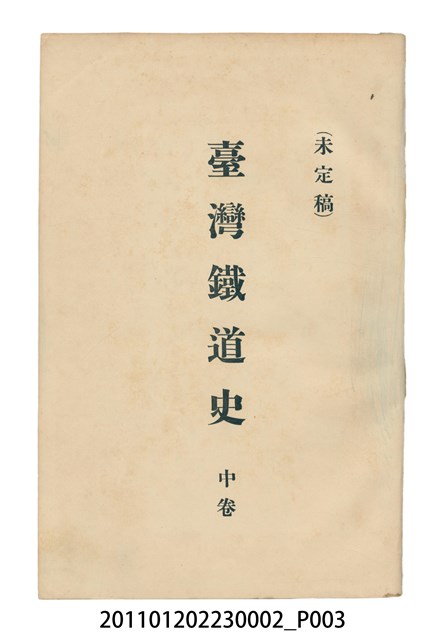 (未定稿)
臺灣鐵道史
中卷
201101202230002_P003